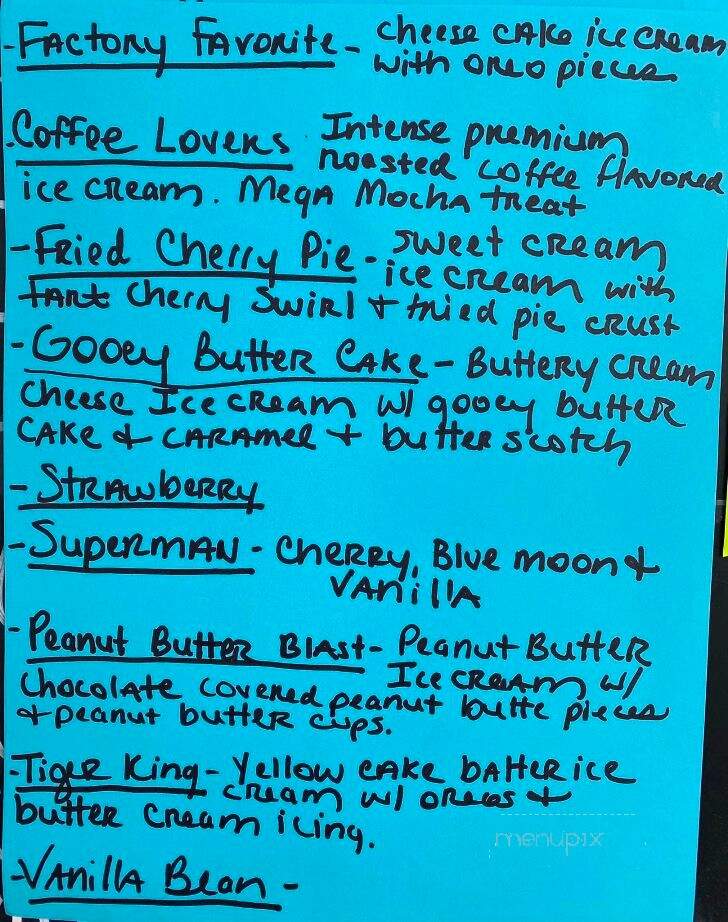 -Factory Favorite- cheese cake ice cream
with oreo pieces
.Coffee Lovers Intense premium
roasted coffee flavored
ice cream. Mega Mocha treat
-Fried Cherry Pie- sweet cream
ice cream with
tart cherry swirl + fried pie crust
-Gooey Butter Cake- Buttery cream
cheese Ice cream w/ gooey butter
cake & caramel + butterscotch
-Strawberry
-Superman- cherry, Blue moon &
vanilla
-Peanut Butter Blast- Peanut Butter
Ice cream w/
chocolate covered peanut butte pieces
+ peanut butter cups.
-Tiger King- Yellow cake batter ice
cream w/ oreos &
butter cream icing.
menupix
-Vanilla Bean-